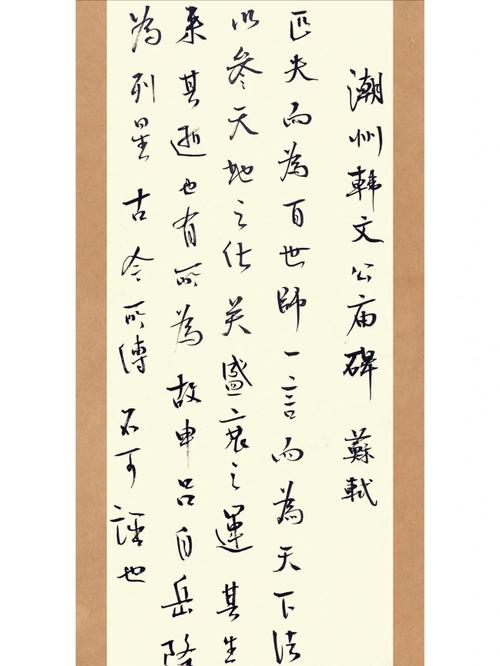 潮州韩文公庙碑 蘇軾
匹夫而為百世師一言而為天下法
以参天地之化关盛衰之運其生
来其逝也有所為故申吕自岳降
為列星古今所傳不可誣也